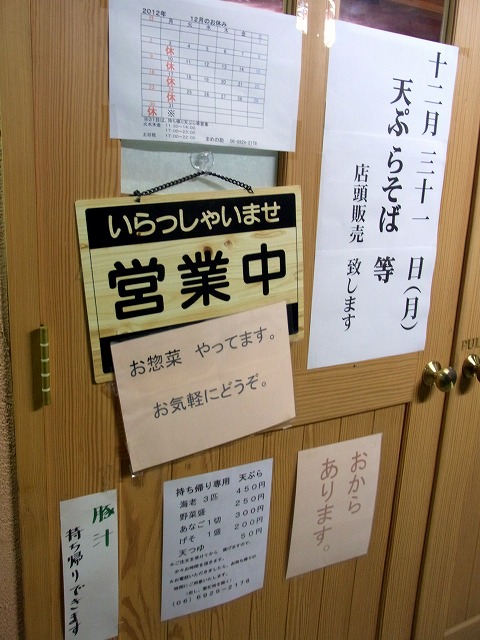 2012年 12月のお休み
日 月 火 水 木 金 土
休
休
休
休
休 ※
まめの助 06-6929-2176
十二月三十一日(月)
天ぷらそば 等
店頭販売 致します
いらっしゃいませ
営業中
お惣菜 やってます。
お気軽にどうぞ。
持ち帰り専用 天ぷら
海老 3匹 450円
野菜盛 250円
あなご1切 300円
げそ 1盛 200円
天つゆ 50円
(06)6929-2176
おから
あります。
豚汁
持ち帰りできます